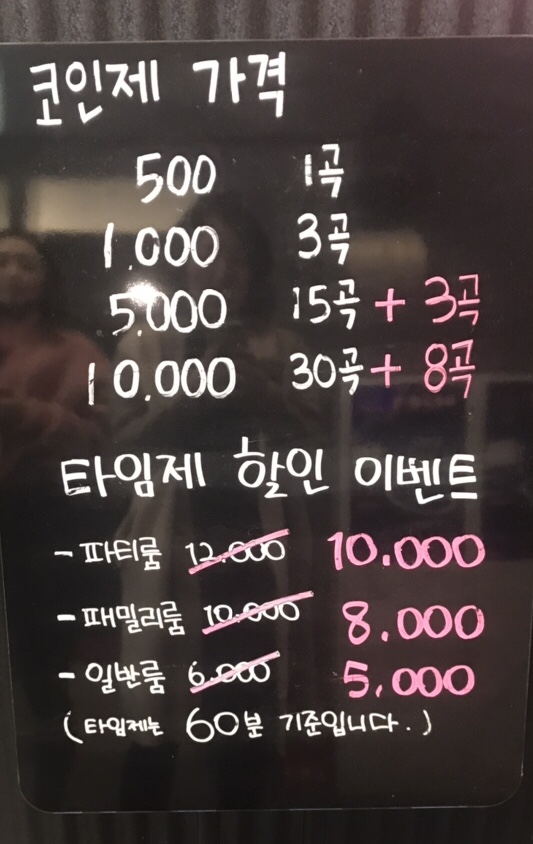 코인제 가격
500 1곡
1.000 3곡
5.000 15곡 + 3곡
10.000 30곡 + 8곡
타임제 할인 이벤트
- 파티룸 12.000 10.000
- 패밀리룸 10.000 8.000
- 일반룸 6.000 5.000
(타임제는 60분 기준입니다.)